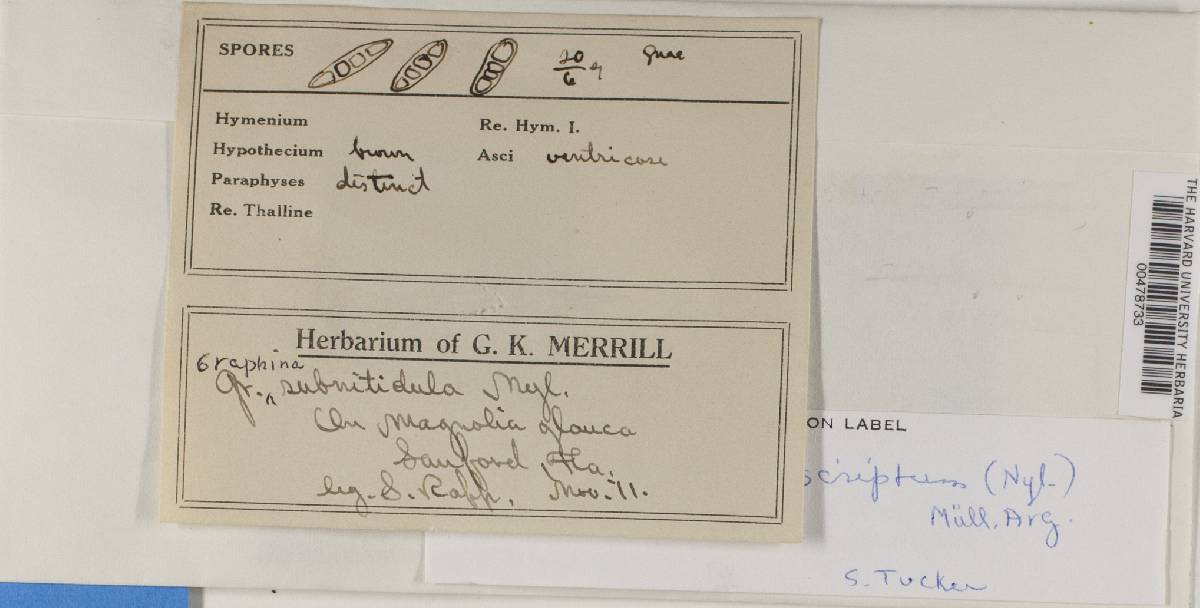 SPORES 20/6 µ
Hymenium Re. Hym. I.
Hypothecium brown Asci ventricose
Paraphyses distinct
Re. Thalline
Herbarium of G. K. MERRILL
Graphina
Gr. ^ subnitidula Nyl.
On Magnolia glauca
Sanford, Fla.
leg. S. Rapp, Nov. '11.
ON LABEL
scriptum (Nyl.)
Müll. Arg.
S. Tucker
THE HARVARD UNIVERSITY HERBARIA
00478733